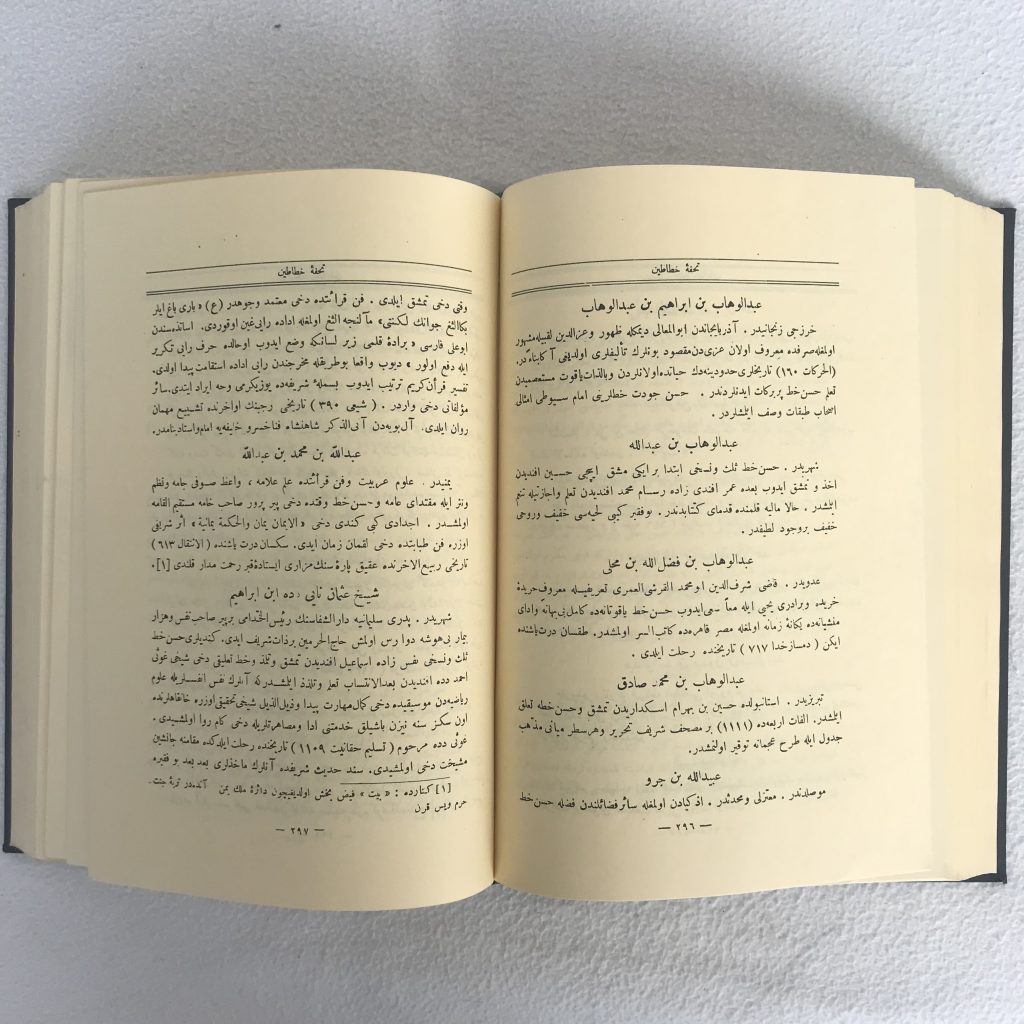 تحفهٔ خطاطین
عبدالوهاب بن ابراهیم بن عبدالوهاب
خزرجی زنجانیدر . آذربایجاندن ابوالمعالی دیمکله ظهور وعزالدین لقبیله مشهور
اولمغله صرفده معروف اولان عزی‌دن مقصود بونلرك تألیفلری اولدیغی آ کابناءً در.
(الحرکات ١٦٠) تاریخلری حدودینه‌دك حیاتده اولانلردن وبالذات یاقوت مستعصمیدن
تعلم حسن خط پربرکات ایدنلردندر . حسن جودت خطلرینی امام سیوطی امثالی
اصحاب طبقات وصف ایلشلردر .
عبدالوهاب بن عبدالله
شهریدر . حسن خط ثلث ونسخی ابتدا برایکی مشق ایچجی حسین افندیدن
اخذ و تمشق ایدوب بعده عمر افندی زاده رسام محمد افندیدن تعلم واجازتیله تنم
ایلشدر . حالا مالیه قلمنده قدمای کتابدندر . بوفقیر کبی لحیه‌سی خفیف وروحی
خفیف بروجود لطیفدر .
عبدالوهاب بن فضل الله بن محلی
عدویدر . قاضی شرف‌الدین ابومحمد القرشی العمری تعریفیله معروف جریدهٔ
خریده وبرادری یحیی ایله معاً سعی ایدوب حسن خط یاقوتانه‌ده کامل بی‌بهانه وادای
منشیانه‌ده یکانهٔ زمانه اولمغله مصر قاهره‌ده کاتب السر اولمشدر. طقسان درت یاشنده
ایکن ( دمساز خدا ٧١٧ ) تاریخنده رحلت ایلدی .
عبدالوهاب بن محمد صادق
تبریزیدر . استانبولده حسین بن بهرام اسکداریدن تمشق وحسن خطه تعلق
ایلشدر. الفات اربعه‌ده (١١١١) بر مصحف شریف تحریر وهر سطر میانی مذهب
جدول ایله طرح عجمانه توقیر اولنمشدر.
عبیدالله بن جرو
موصلدندر . معتزلی ومحدثدر . اذکیادن اولمغله سائر فضائلندن فضله حسن خط
— ٢٩٦ —
تحفهٔ خطاطین
وفنی دخی تمشق ایلدی . فن قرائتده دخی معتمد وجوهدر (ع) « باری باغ ایلر
بکا الثغ جوانك لکنتی» مآلنجه الثغ اولمغله اداده رایی غین اوقوردی. اساتذه‌سندن
ابوعلی فارسی « برادهٔ قلمی زیر لسانکه وضع ایدوب اوحالده حرف رایی تکریر
ایله دفع اولور » دیوب واقعا بوطریقله مخرجندن رایی اداده استقامت پیدا اولدی.
تفسیر قرآن کریم ترتیب ایدوب بسملهٔ شریفه‌ده یوزیکرمی وجه ایراد ایتدی. سائر
مؤلفاتی دخی واردر . ( شیعی ٣٩٠ ) تاریخی رجبنك اواخرنده تشییع مهمان
روان ایلدی. آل بویه‌دن آنی الذکر شاهنشاه فناخسرو خلیفه‌یه امام واستاد بنامدر.
عبدالله بن محمد بن عبدالله
یمنیدر . علوم عربیت وفن قرائتده علم علامه ، واعظ صوفی جامه ونظم
ونثر ایله مقتدای عامه وحسن خط وقتده دخی پیر پرور صاحب خامه مستقیم القامه
اولمشدر . اجدادی کبی کندی دخی « الایمان یمان والحکمة یمانیة » اثر شریفی
اوزره فن طبابتده دخی لقمان زمان ایدی. سکسان درت یاشنده ( الانتقال ٦١٣ )
تاریخی ربیع‌الاخرنده عقیق پارهٔ سنك مزاری ایستادهٔ قبر رحمت مدار قلندی [١].
شیخ عثمان نایی دده ابن ابراهیم
شهریدر . پدری سلیمانیه دارالشفاسنك رئیس الخدامی برپیر صاحب نفس وهزار
بیمار بی‌هوشه دوا رس اولمش حاج‌الحرمین برذات شریف ایدی. کندیلری حسن خط
ثلث ونسخی نفس زاده اسماعیل افندیدن تمشق وتلمذ وخط تعلیقی دخی شیخی غوثی
احمد دده افندیدن بعدالانتساب تعلم وتلذذ ایلشدر که آنلرك نفس انفسلریله علوم
ریاضیه‌دن موسیقیده دخی کمال مهارت پیدا وذیل الذیل شیخی تحقیق اوزره خانقاهلرنده
اون سکز سنه نیزن باشیلق خدمتنی ادا ومصاهرتلریله دخی کام روا اولمشیدی .
غوثی دده مرحوم ( تسلیم حقانیت ١١٠٩ ) تاریخنده رحلت ایلدکده مقامنه جانشین
مشیخت دخی اولمشیدی. سند حدیث شریفده آنلرك ماخذلری بعد بعد بو فقیره
[١] کنارده : « بیت » فیض بخش اولدیغیچون دائرهٔ ملك یمن آنده‌در تربهٔ جنت
حرم ویس قرن
— ٢٩٧ —